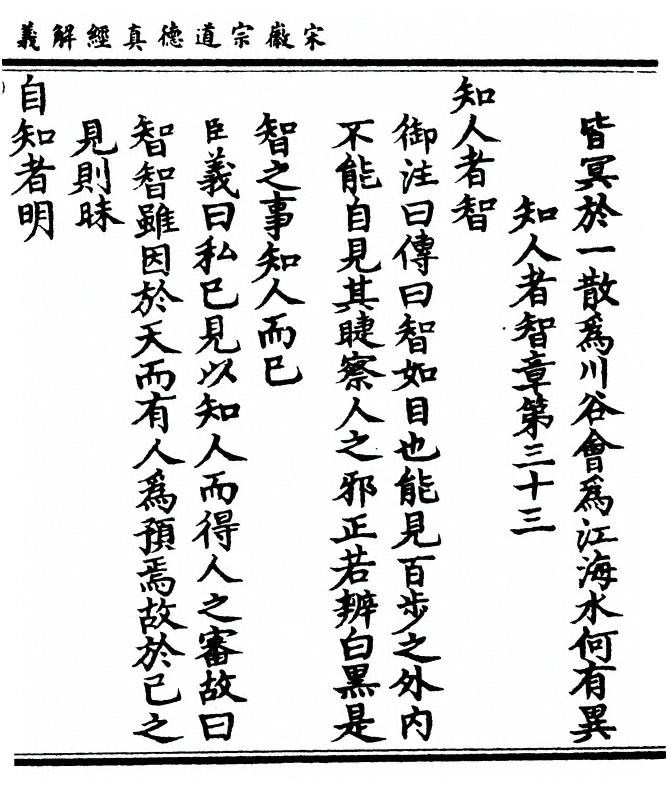 宋徽宗道德真經解義
皆冥於一散為川谷會為江海水何有異
知人者智章第三十三
知人者智
御注曰傳曰智如目也能見百步之外内
不能自見其睫察人之邪正若辨白黑是
智之事知人而已
臣義曰私已見以知人而得人之審故曰
智智雖因於天而有人為預焉故於已之
見則昧
自知者明